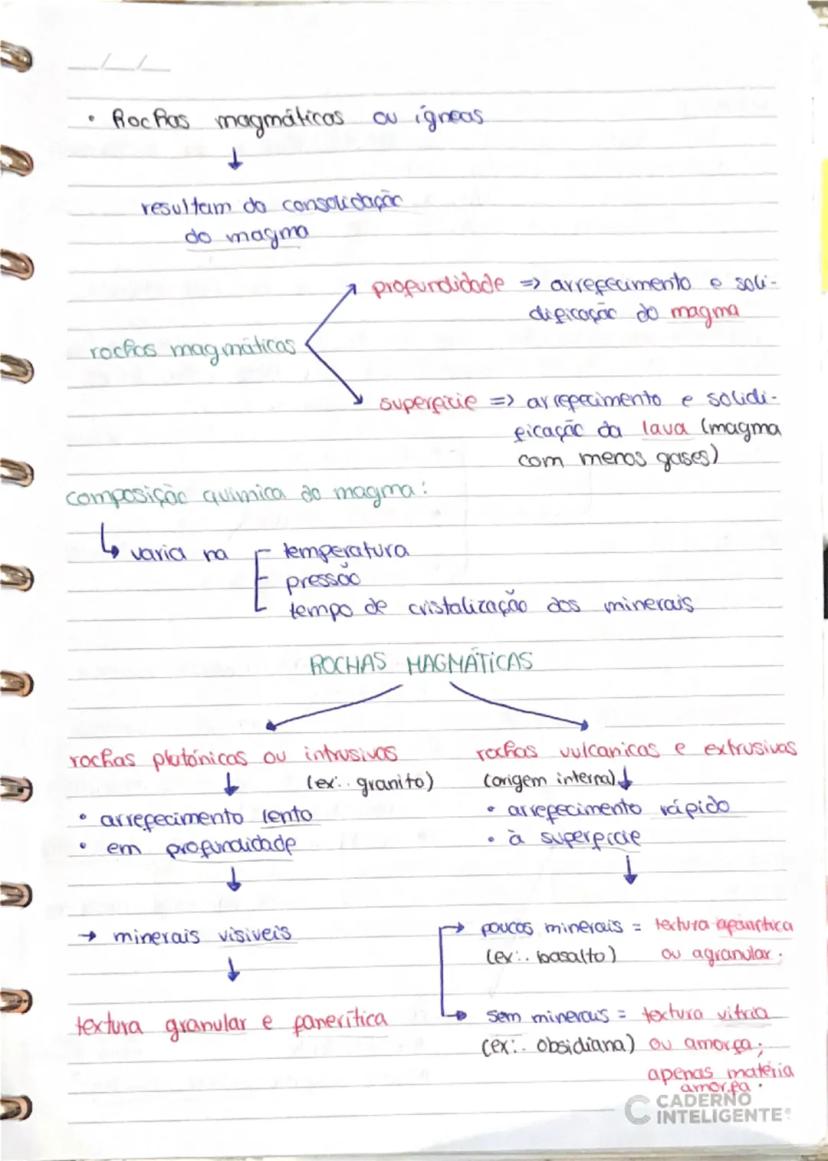 __/__/__
• Rochas magmáticas ou ígneas
↓
resultam da consolidação
do magma
profundidade => arrefecimento e soli-
dificação do magma
rochas magmáticas
superfície => arrefecimento e solidi-
ficação da lava (magma
com menos gases)
composição química do magma:
↳ varia na temperatura
pressão
tempo de cristalização dos minerais
ROCHAS MAGMÁTICAS
rochas plutónicas ou intrusivas
(ex:. granito)
• arrefecimento lento
• em profundidade
↓
→ minerais visiveis
↓
textura granular e fanerítica
rochas vulcanicas e extrusivas
(origem interna) ↓
• arrefecimento rápido
• à superfície
↓
poucos minerais = textura afanítica
(ex:. basalto) ou agranular;
sem minerais = textura vitria
(ex:. obsidiana) ou amorfa;
apenas matéria
amorfa.
CADERNO
INTELIGENTE®